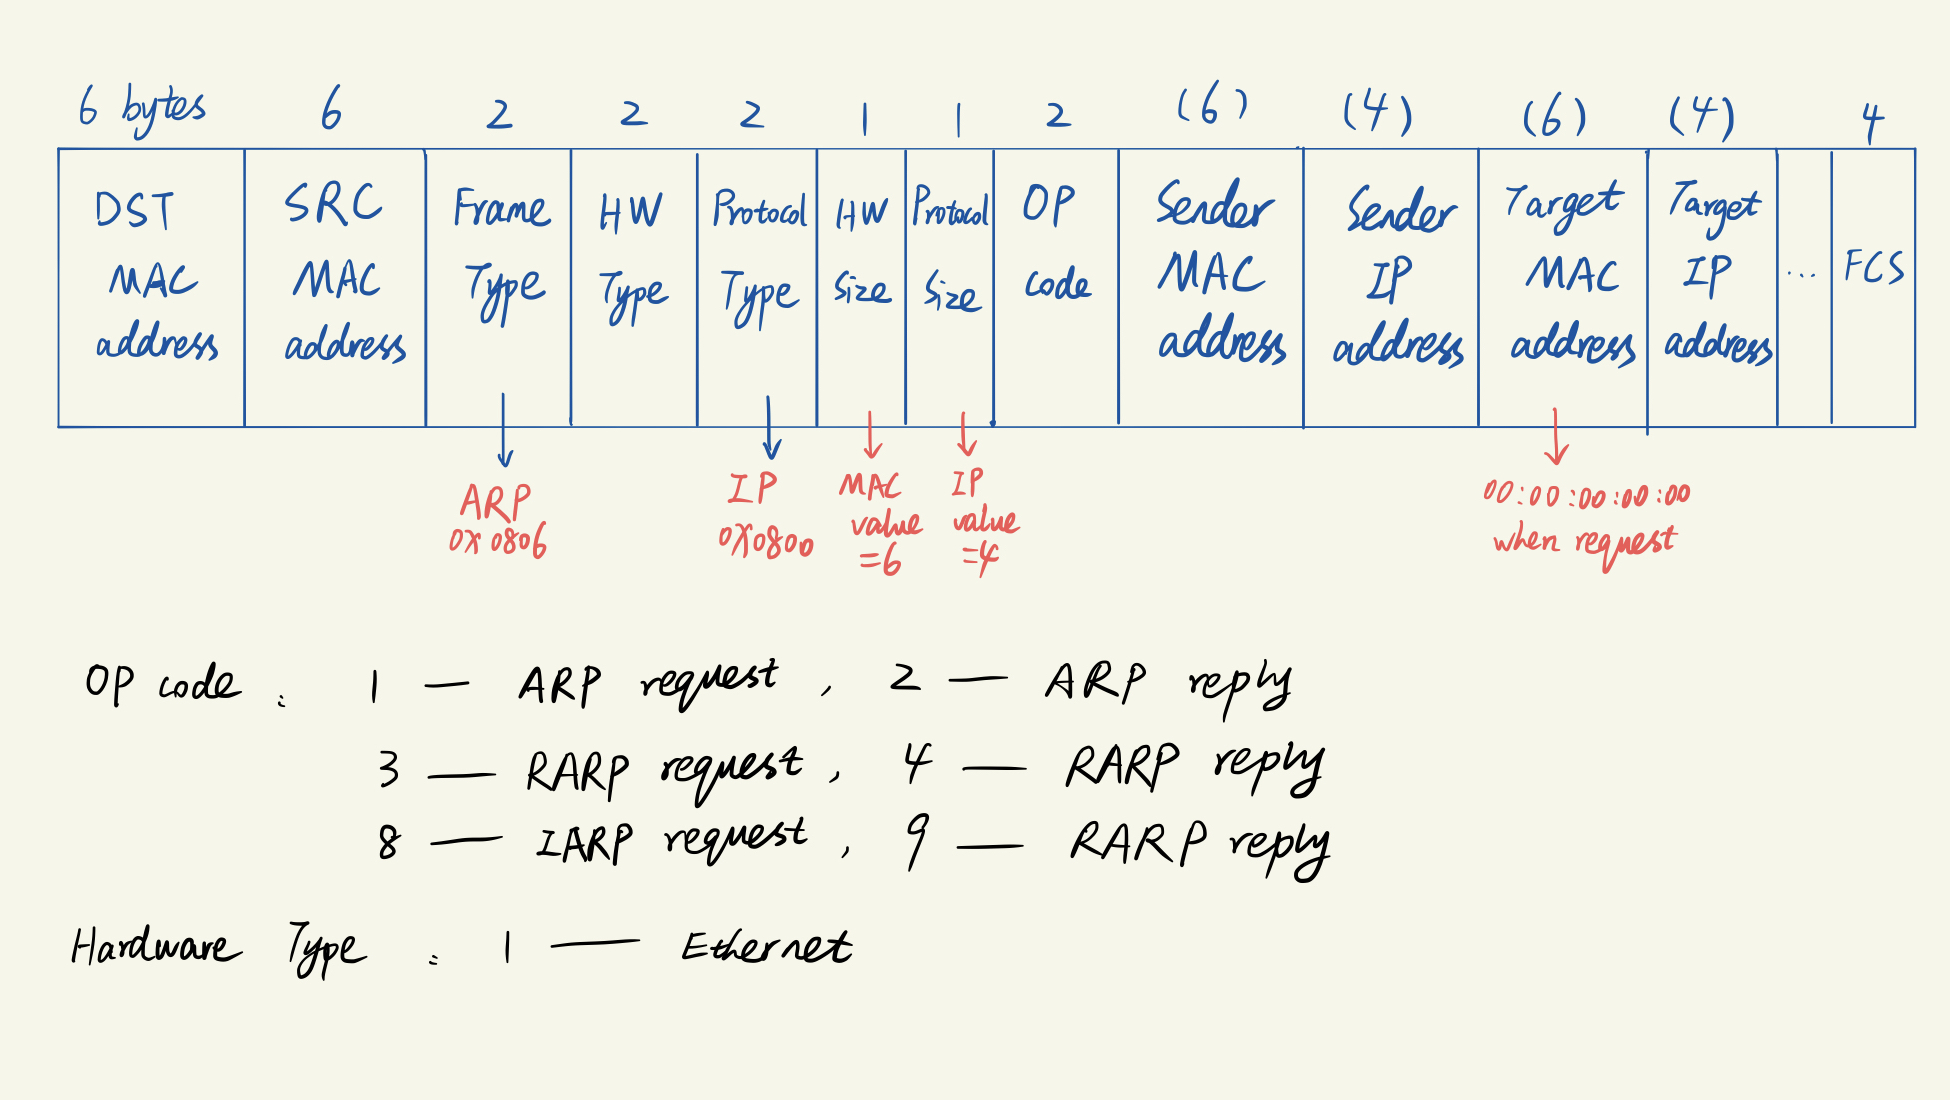 6 bytes 6 2 2 2 1 1 2 (6) (4) (6) (4) 4
DST MAC address
SRC MAC address
Frame Type
HW Type
Protocol Type
HW Size
Protocol Size
OP code
Sender MAC address
Sender IP address
Target MAC address
Target IP address
...
FCS
ARP
0x0806
IP
0x0800
MAC
value
=6
IP
value
=4
00:00:00:00:00
when request
OP code : 1 — ARP request , 2 — ARP reply
3 — RARP request , 4 — RARP reply
8 — IARP request , 9 — RARP reply
Hardware Type : 1 — Ethernet